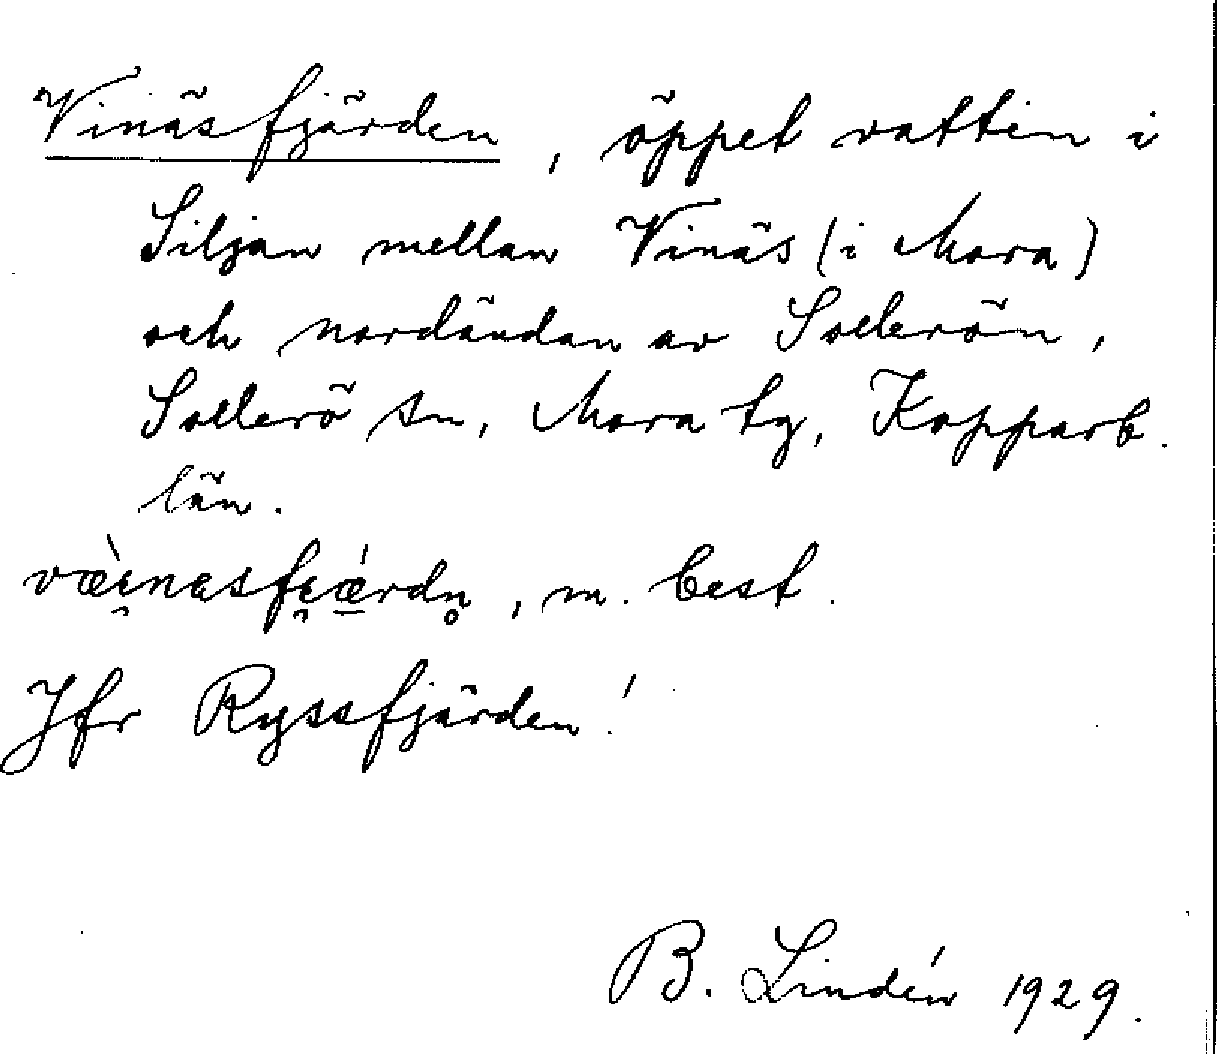 Vinäsfjärden, öppet vatten i
Siljan mellan Vinäs (i Mora)
och nordändan av Sollerön,
Sollerö sn, Mora tg, Kopparb.
län.
væ̀i̯nasfi̯ǽ̠rdn̥, m. best.
Jfr Ryssfjärden!
B. Lindén 1929.